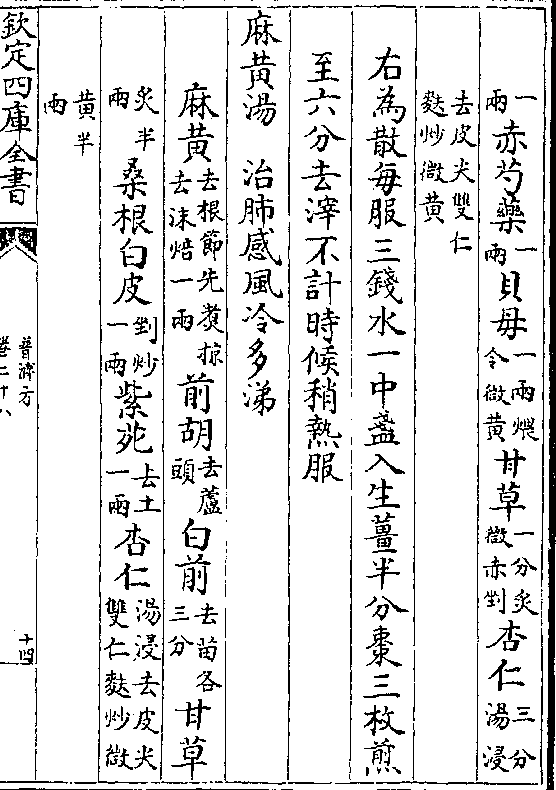 一兩赤芍藥一兩貝母一兩煨令微黄甘草一分炙微赤剉杏仁三分湯浸
去皮尖雙仁麩炒微黄
右為散每服三錢水一中盞入生薑半分棗三枚煎
至六分去滓不計時候稍熱服
麻黄湯 治肺感風冷多涕
麻黄去根節先煑掠去沫焙一兩前胡去蘆頭白前去苗各三分甘草
炙半兩桑根白皮剉炒一兩紫苑去土一兩杏仁湯浸去皮尖雙仁麩炒微
黄半兩
欽定四庫全書
普濟方
卷二十八
十四